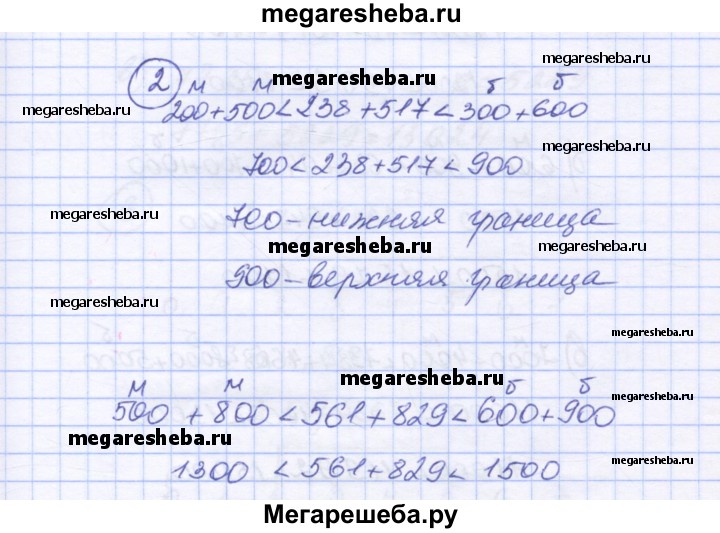 megaresheba.ru
megaresheba.ru
2 м м megaresheba.ru б б
megaresheba.ru 200+500<238+517<300+600
megaresheba.ru
700<238+517<900
megaresheba.ru 700-нижняя граница
megaresheba.ru megaresheba.ru
900-верхняя граница
megaresheba.ru
megaresheba.ru
м м megaresheba.ru б б
megaresheba.ru
500 + 800 < 561 + 829 < 600 + 900
megaresheba.ru
1300 < 561 + 829 < 1500
megaresheba.ru
Мегарешеба.ру